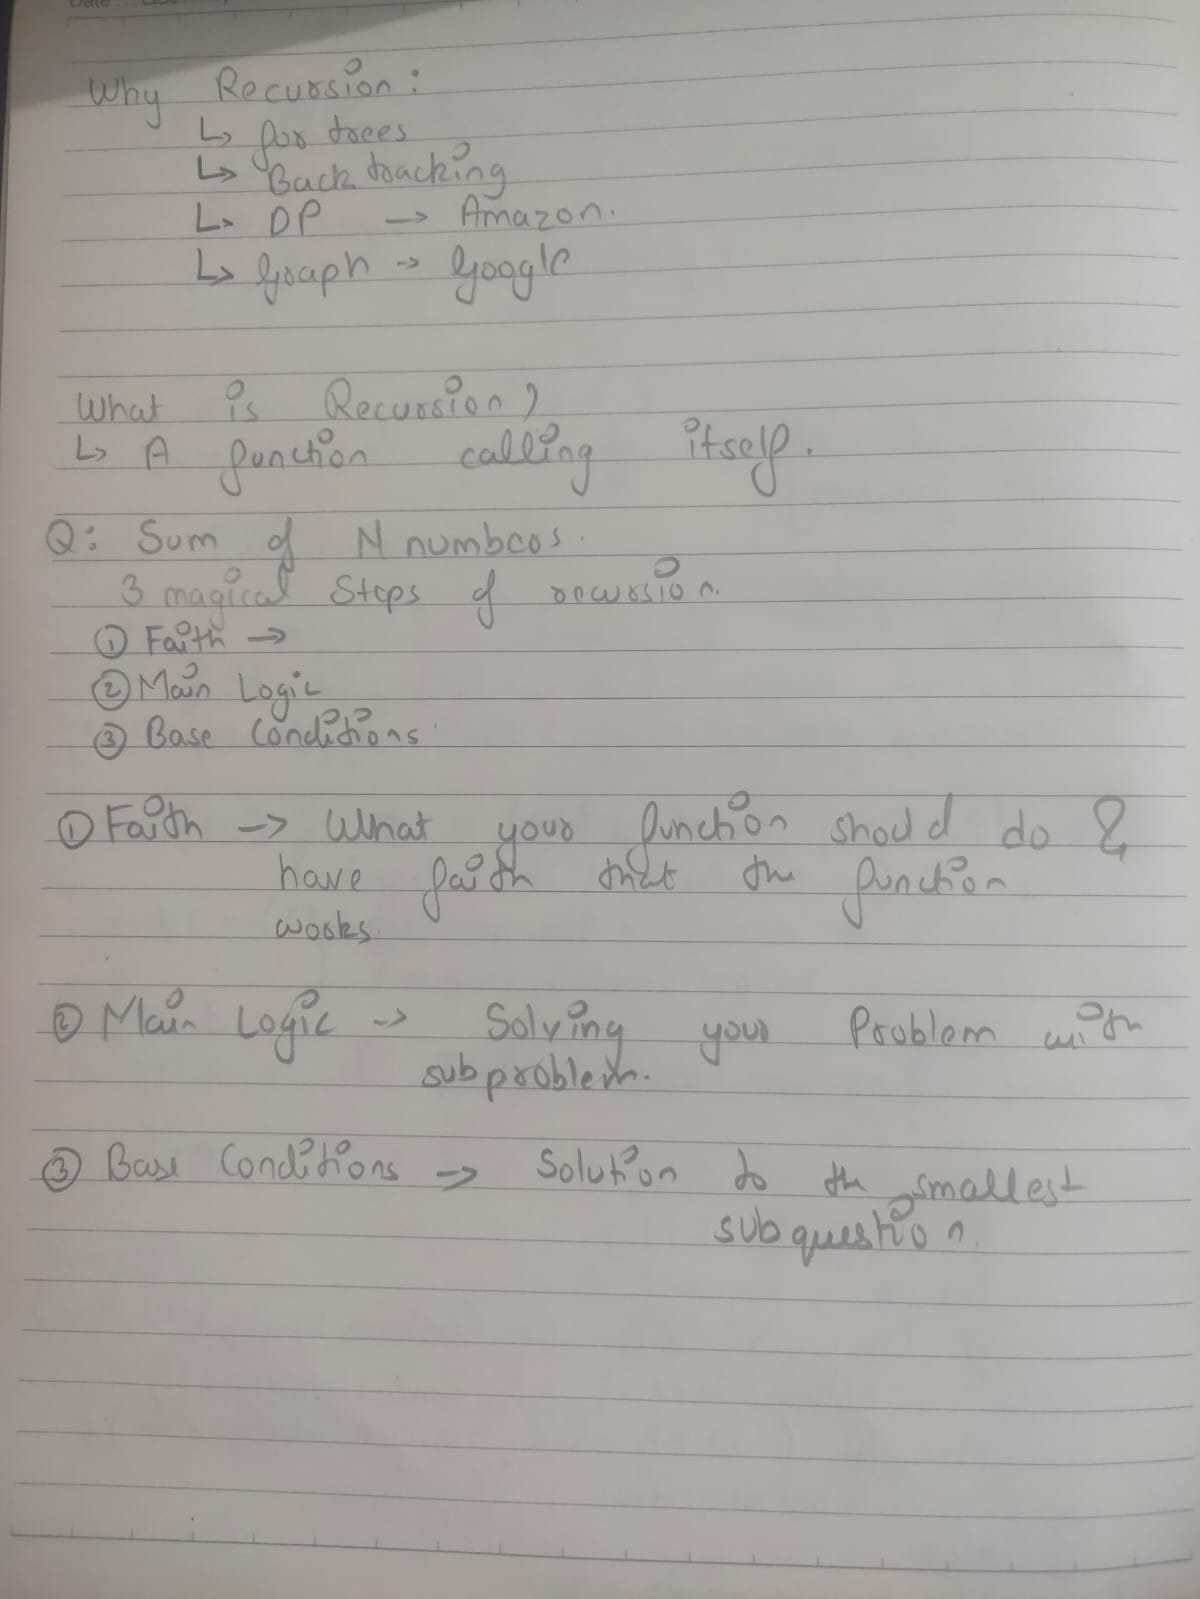 Date
Why Recursion:
↳ for trees
↳ Back tracking
↳ DP → Amazon.
↳ Graph → Google
What is Recursion?
↳ A function calling itself.
Q: Sum of N numbers.
3 magical Steps of recursion.
① Faith →
② Main Logic
③ Base Conditions
① Faith → What your function should do &
have faith that the function
works.
② Main Logic → Solving your Problem with
subproblem.
③ Base Conditions → Solution to the smallest
subquestion.